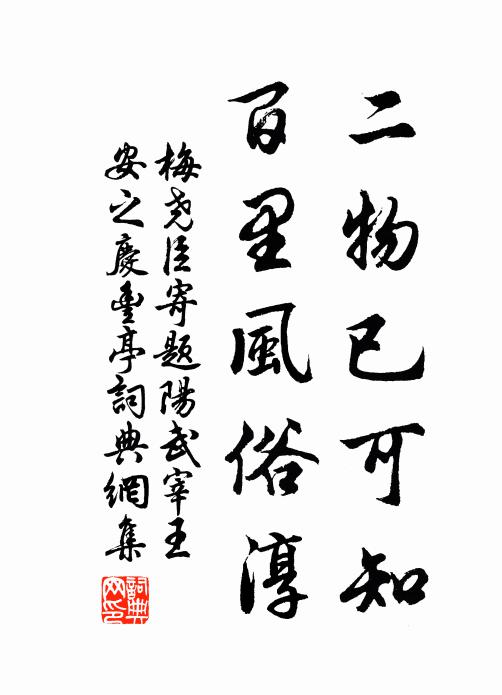 二物已可知
百里風俗淳
梅尧臣寄題陽武宰王
安之慶豐亭詞典網集
詞典
网印